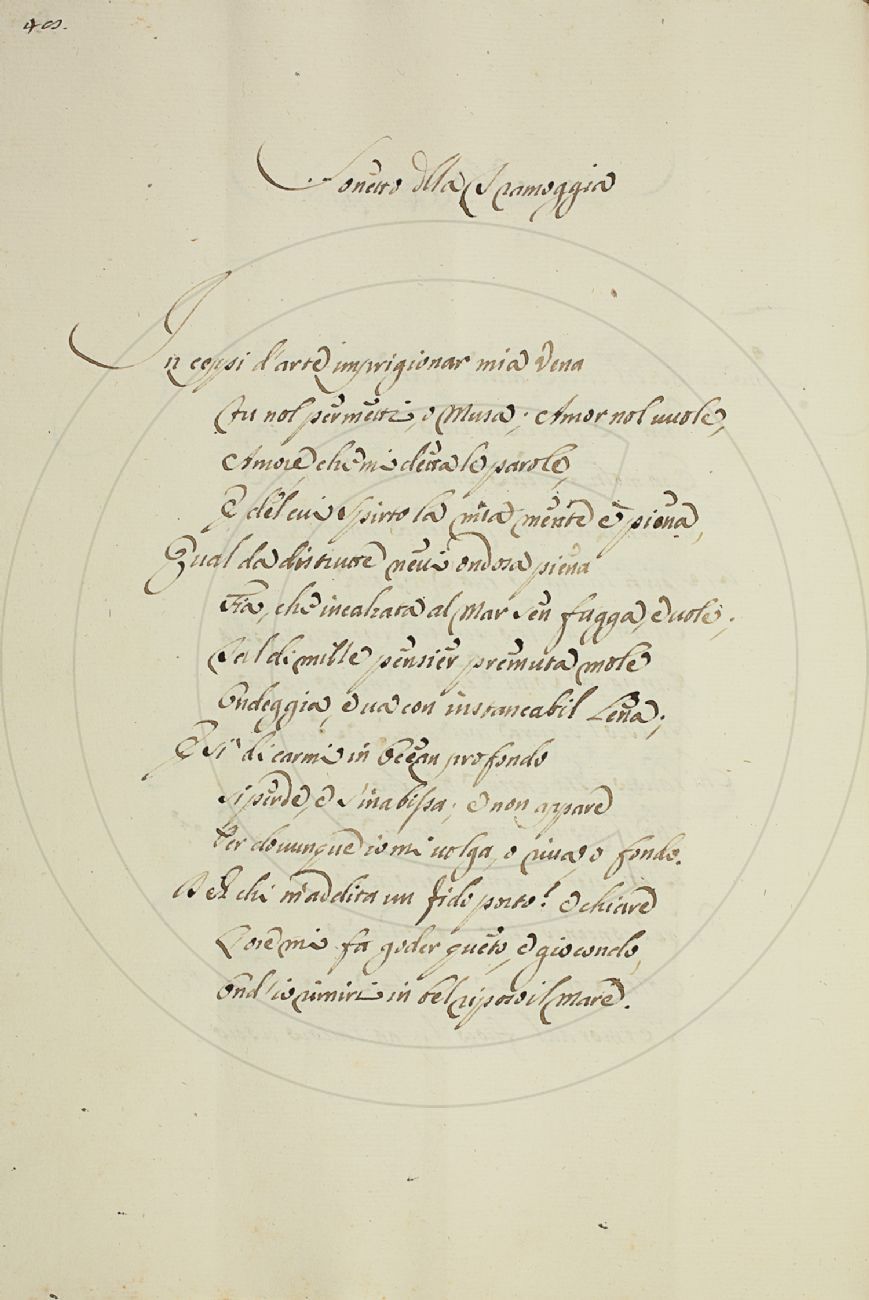 48.
Sonetto della Scramoggia
In ceppi d'arte imprigionar mia vena
Tu nol permetti, o Musa; Amor nol vuole,
Amore, che mi detta le parole,
E del cui Spirto la mia mente è piena,
Qual da distrutte nevi ondosa piena
Fia, che incalzata al Mar sen fugga, e vole;
Tal di mille pensier premuta mole
Ondeggia, e va con instancabil Lena;
E sì di carmi in Ocean profondo
Si perde, e s'inabissa; e non appare
Per dovunque io mi volga, o riva, o fondo.
Deh chi m'addita un fido porto! e chiare
L'ore mi fa goder queto, e giocondo,
Ond'io rimiri in bel riposo il Mare.